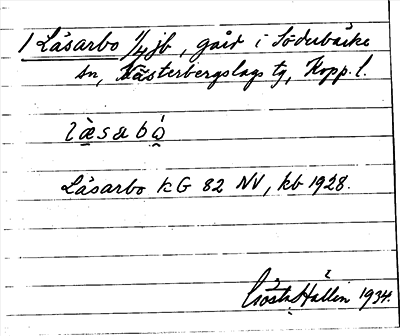 1 Läsarbo 1/4 jb, gård i Söderbärke
sn, Västerbergslags tg, Kopp. l.
læsabo
Läsarbo kG 82 NV, kb 1928.
Gösta Hallén 1934.